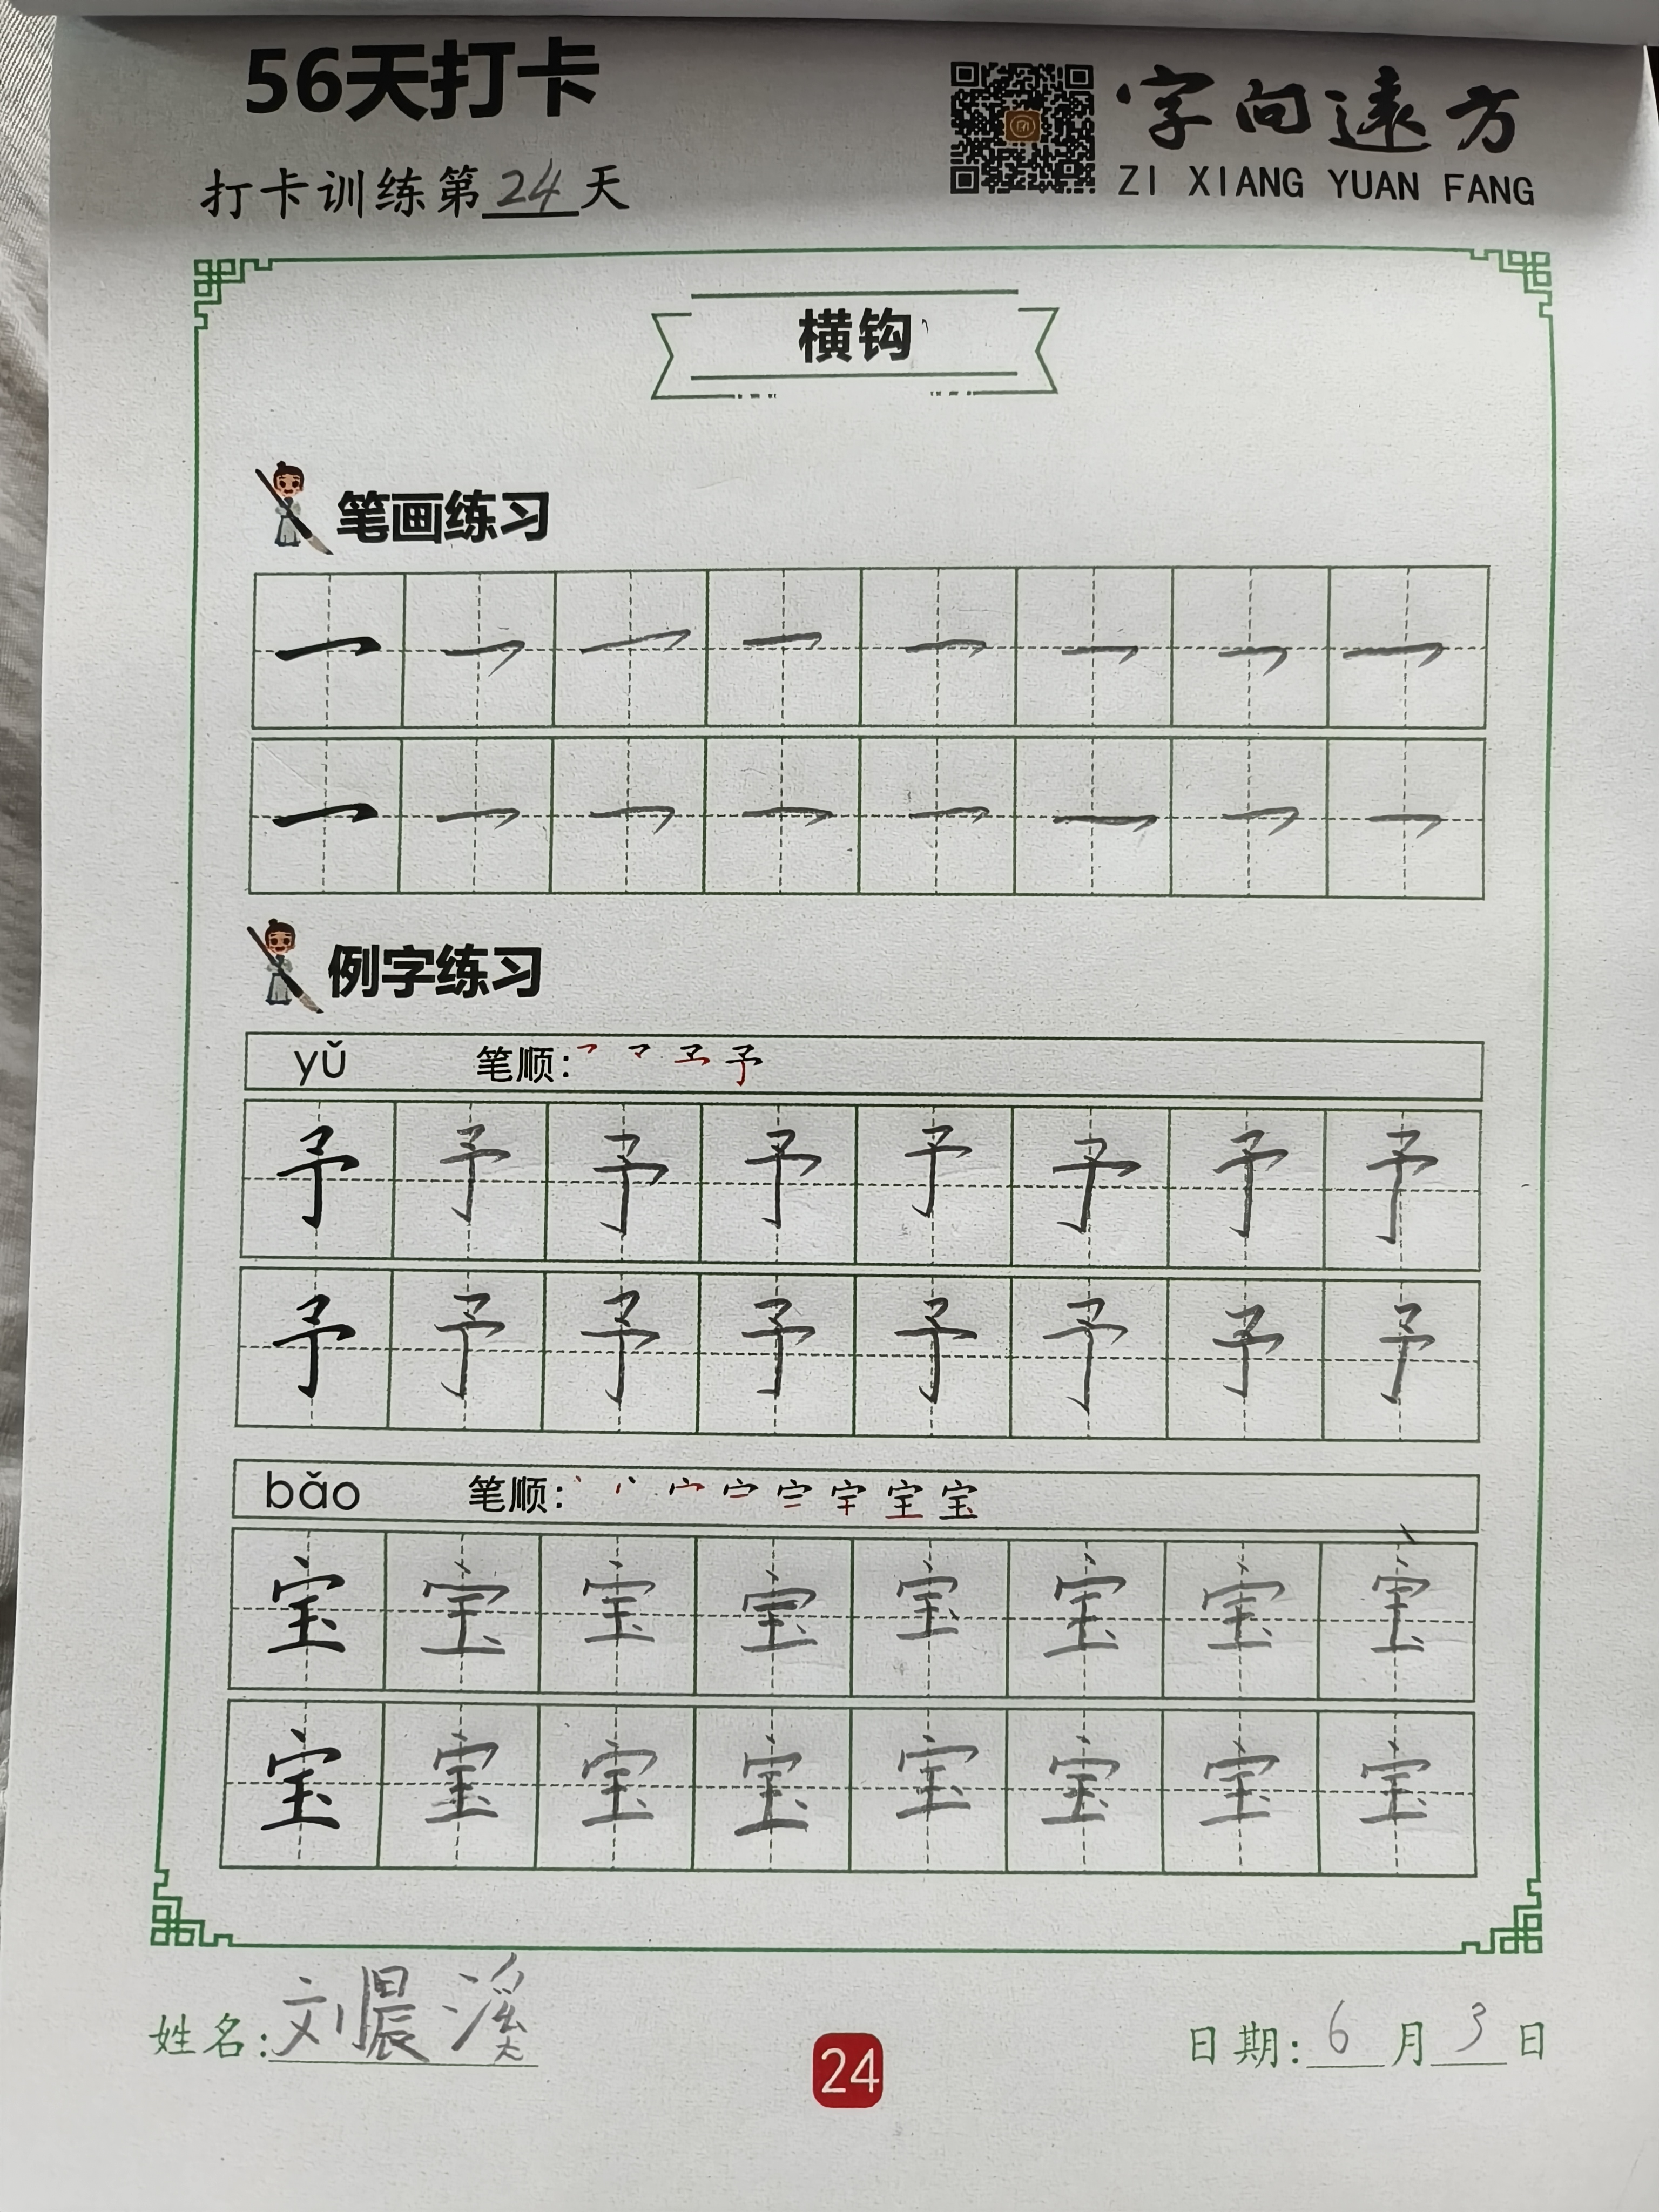 56天打卡
字向遠方
ZI XIANG YUAN FANG
打卡训练第24天
横钩
笔画练习
例字练习
yǔ 笔顺:
予 予 予 予 予 予 予 予
予 予 予 予 予 予 予 予
bǎo 笔顺:
宝 宝 宝 宝 宝 宝 宝 宝
宝 宝 宝 宝 宝 宝 宝 宝
姓名:刘晨溪
日期:6月3日
24